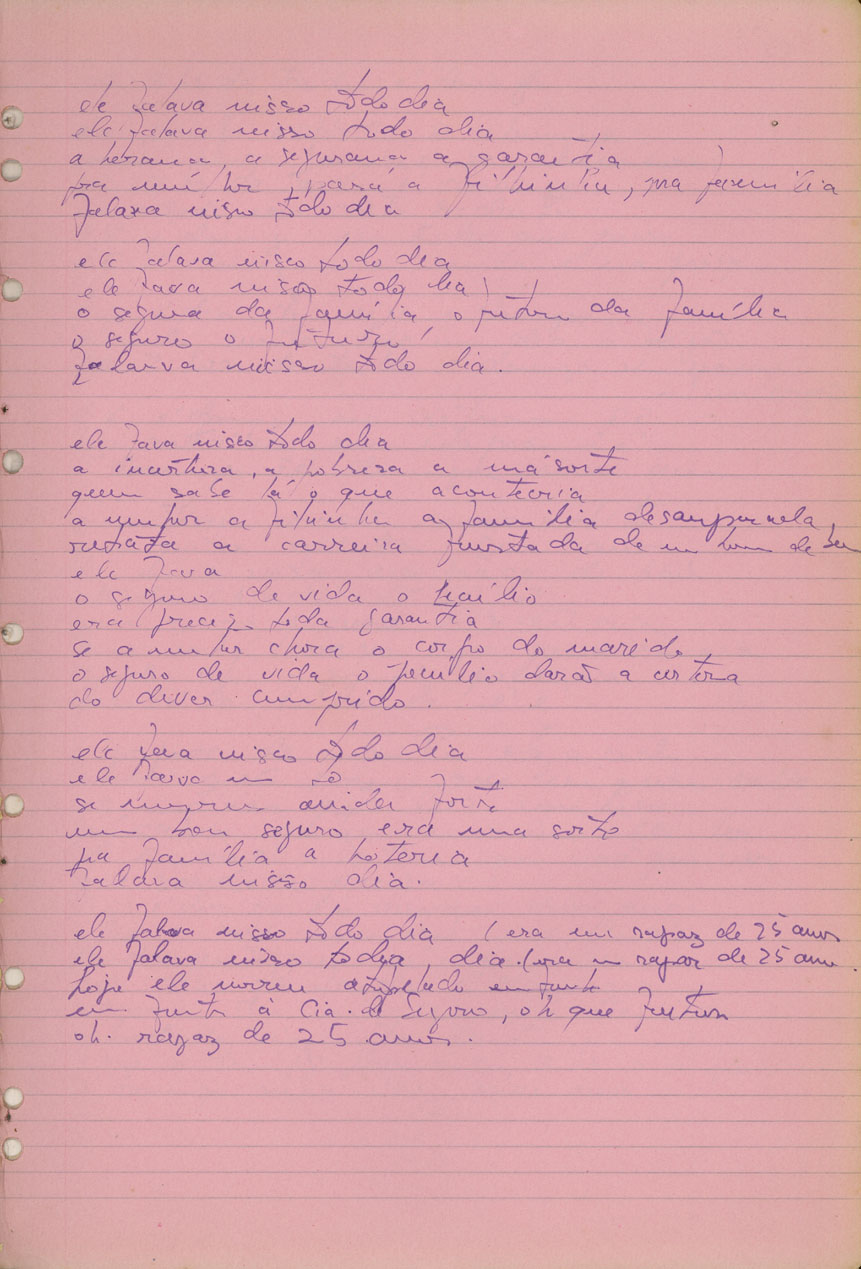 ele falava nisso todo dia
ele falava nisso todo dia
a herana, a segurana a garantia
pra mulher, para a filhinha, pra família
falava nisso todo dia
ele falava nisso todo dia
ele fava nisso todo
o segura da família, o futuro da família
o seguro o futuro,
falava nisso todo dia.
ele fava nisso todo dia
a incerteza, a pobreza a má sorte
quem sabe lá o que aconteceria
a mulher a filhinha a família desamparada,
a carreira frustada de um homem de bem
ele fava
o seguro de vida o pecúlio
era preciso toda garantia
se a mulher chora o corpo do marido
o seguro de vida o pecúlio dará a certeza
do dever cumprido.
ele fava nisso todo dia
ele
se
um bom seguro era uma sorte
pa família a loteria
falava nisso dia.
ele falava nisso todo dia (era um rapaz de 25 anos
ele falava nisso todia dia. (era um rapaz de 25 anos.
hoje ele morreu atropelado em frente
em frente à Cia. de Seguro, oh que futuro
oh. rapaz de 25 anos.